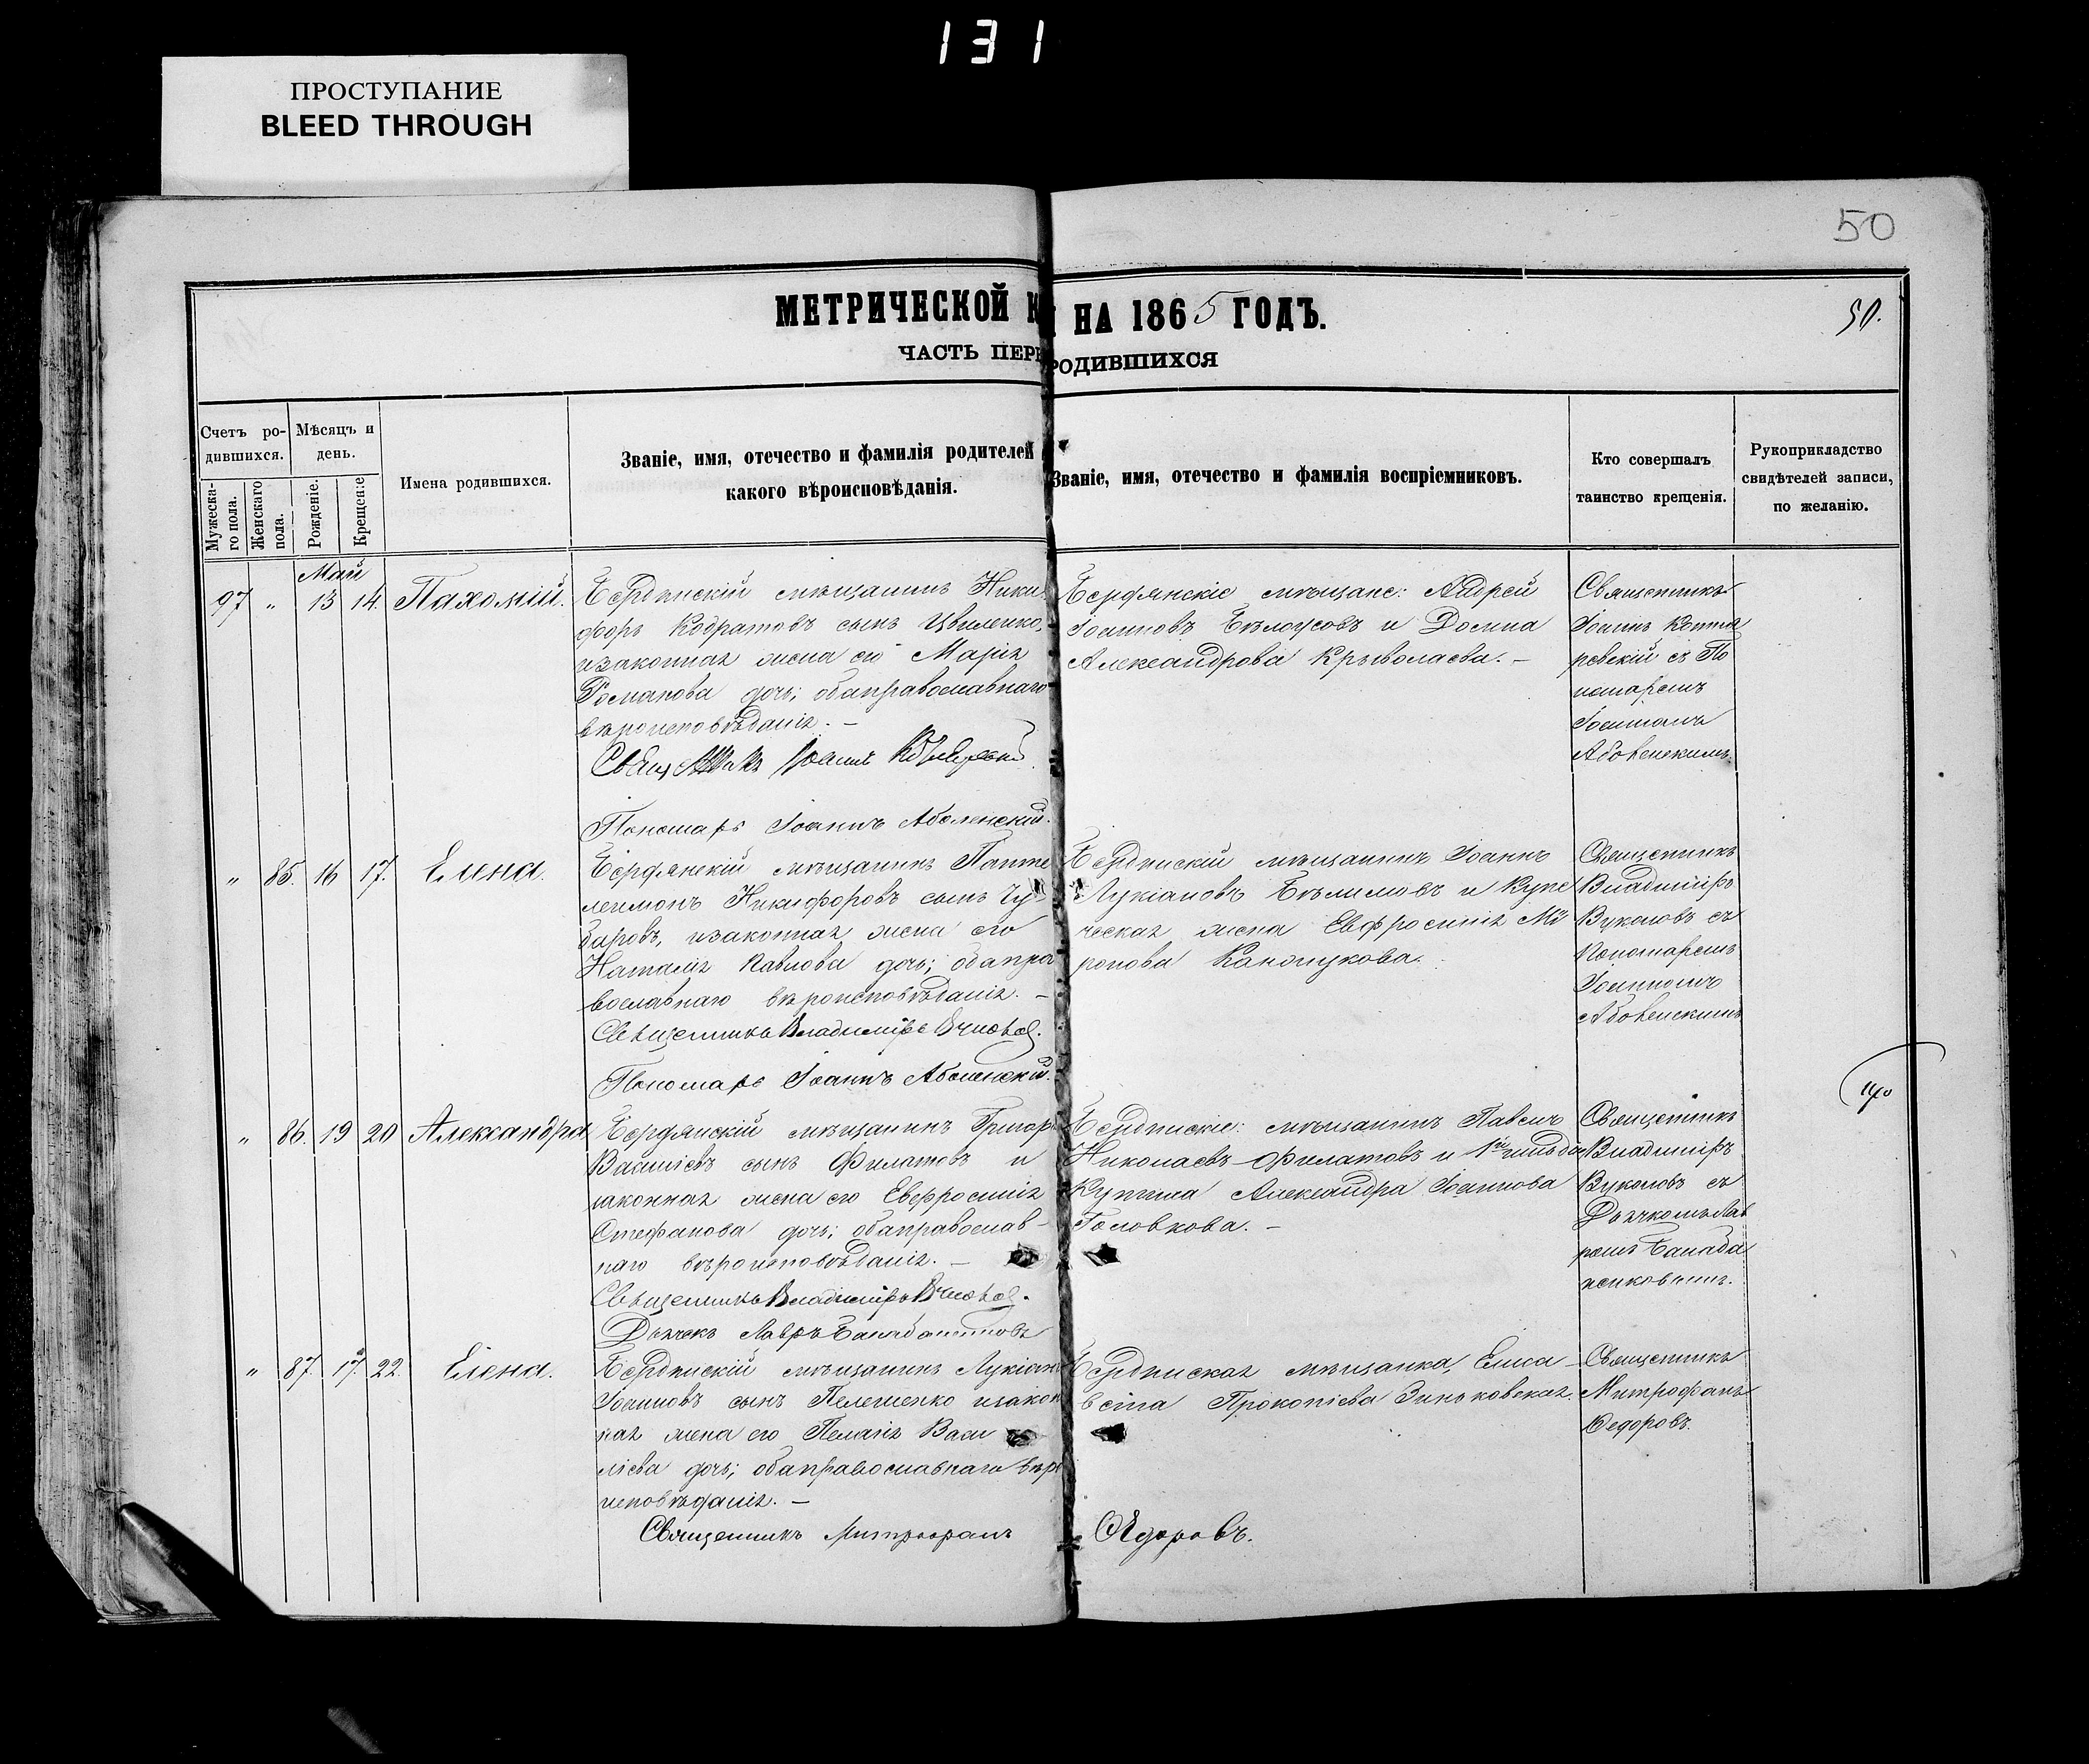 131
ПРОСТУПАНИЕ
BLEED THROUGH
50
МЕТРИЧЕСКОЙ К НА 1865 ГОДЪ.
50.
ЧАСТЬ ПЕРВ РОДИВШИХСЯ
Счетъ ро-
дившихся.
Мужеска-
го пола.
Женскаго
пола.
Мѣсяцъ и
день.
Рожденіе.
Крещеніе
Имена родившихся.
Званіе, имя, отечество и фамилія родителей
какого вѣроисповѣданія.
Званіе, имя, отечество и фамилія воспріемниковъ.
Кто совершалъ
таинство крещенія.
Рукоприкладство
свидѣтелей записи,
по желанію.
Май
97 " 13 14. Пахомій.
Бердянскій мѣщанинъ Ники
форъ Кодратовъ сынъ Цвиленко,
изаконная жена его Марія
Романова дочь; обаправославнаго
вѣроисповѣданія. –
Священникъ Іоаннъ
Пономарь Іоаннъ Аболенскій.
Бердянскіе мѣщане: Андрей
Іоанновъ Бѣлоусовъ и Домна
Александрова Крыволаева. –
Священникъ
Іоаннъ Котля
ревскій съ По
номаремъ
Іоанномъ
Аболенскимъ.
" 85. 16 17. Елена.
Бердянскій мѣщанинъ Панте
леимонъ Никифоровъ сынъ Чу-
баровъ, изаконная жена его
Наталія Павлова дочь; обапра
вославнаго вѣроисповѣданія. –
Священникъ Владиміръ Вуколовъ.
Пономарь Іоаннъ Аболенскій.
Бердянскій мѣщанинъ Іоаннъ
Лукіановъ Бѣлимовъ и Купе
ческая жена Евфросинія Ми
ронова
Священникъ
Владиміръ
Вуколовъ съ
Пономаремъ
Іоанномъ
Аболенскимъ
" 86. 19 20 Александра
Бердянскій мѣщанинъ Григорі
Василіевъ сынъ Филатовъ и
законная жена его Евфросинія
Стефанова дочь; обаправослав-
наго вѣроисповѣданія. –
Священникъ Владиміръ Вуколовъ.
Дьячекъ Лавръ
Бердянскіе: мѣщанинъ Павелъ
Николаевъ Филатовъ и 1й гильдіи
Купчиха Александра Іоаннова
Головкова. –
Священникъ
Владиміръ
Вуколовъ съ
Дьячкомъ Лав
ромъ
" 87. 17. 22. Елена.
Бердянскій мѣщанинъ Лукіанъ
Іоанновъ сынъ Пелешенко изакон
ная жена его Пелагія Васи
лієва дочь; обаправославнаго вѣро
исповѣданія. –
Священникъ Митрофанъ Ѳедоровъ.
Бердянская мѣщанка, Елиса–
вета Прокопіева Зиньковская.
Священникъ
Митрофанъ
Ѳедоровъ.